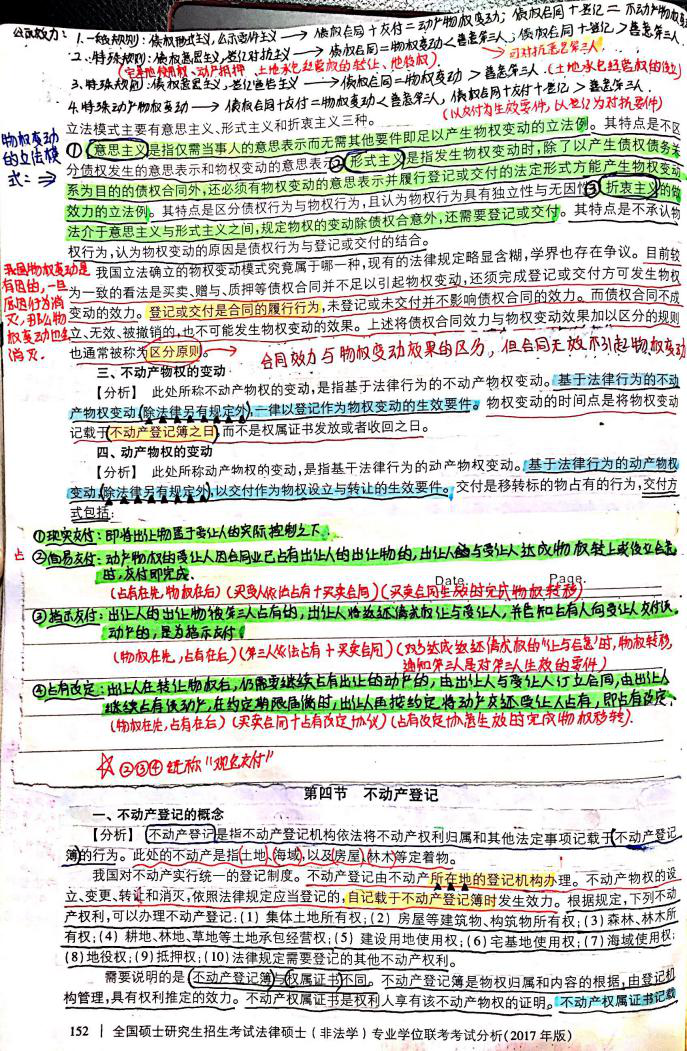 公示效力：1.一般规则：债权形式主义，公示要件主义 → 债权合同＋交付＝动产物权变动；债权合同＋登记＝不动产物权变动
2.特殊规则：债权意思主义，登记对抗主义 → 债权合同＝物权变动＜善意第三人；债权合同＋登记＞善意第三人
→可对抗善意第三人
动产抵押、土地承包经营权的转让、地役权)
3.特殊规则：债权意思主义，登记 → 债权合同＝物权变动＞善意第三人．(土地承包经营权的设立)
4.特殊动产物权变动 → 债权合同＋交付＝物权变动＜善意第三人，债权合同＋交付＋登记＞善意第三人．
(以交付为生效要件，以登记为对抗要件)
物权变动的立法模式：⇒
立法模式主要有意思主义、形式主义和折衷主义三种。
①意思主义是指仅需当事人的意思表示而无需其他要件即足以产生物权变动的立法例。其特点是不区
分债权发生的意思表示和物权变动的意思表示。②形式主义是指发生物权变动时,除了以产生债权债务关
系为目的的债权合同外,还必须有物权变动的意思表示并履行登记或交付的法定形式方能产生物权变动
效力的立法例。其特点是区分债权行为与物权行为,且认为物权行为具有独立性与无因性。③折衷主义的做
法介于意思主义与形式主义之间,规定物权的变动除债权合意外,还需要登记或交付。其特点是不承认物
权行为,认为物权变动的原因是债权行为与登记或交付的结合。
我国物权变动是有因的,一旦原因行为消灭,那么物权变动也会消灭.
我国立法确立的物权变动模式究竟属于哪一种,现有的法律规定略显含糊,学界也存在争议。目前较
为一致的看法是买卖、赠与、质押等债权合同并不足以引起物权变动,还须完成登记或交付方可发生物权
变动的效力。登记或交付是合同的履行行为,未登记或未交付并不影响债权合同的效力。而债权合同不成
立、无效、被撤销的,也不可能发生物权变动的效果。上述将债权合同效力与物权变动效果加以区分的规则
也通常被称为区分原则。→ 合同效力与物权变动效果的区分，但合同无效不引起物权变动
三、不动产物权的变动
【分析】　此处所称不动产物权的变动,是指基于法律行为的不动产物权变动。基于法律行为的不动
产物权变动(除法律另有规定外),一律以登记作为物权变动的生效要件。物权变动的时间点是将物权变动
记载于不动产登记簿之日,而不是权属证书发放或者收回之日。
四、动产物权的变动
【分析】　此处所称动产物权的变动,是指基于法律行为的动产物权变动。基于法律行为的动产物权
变动(除法律另有规定外),以交付作为物权设立与转让的生效要件。交付是移转标的物占有的行为,交付方
式包括:
①现实交付：即将出让物置于受让人的实际控制之下.
占
②简易交付：动产物权的受让人因合同业已占有出让人的出让物的，出让人与受让人达成物权转让或设立合意
时，交付即完成．
Date　Page.
(占有在先,物权在后)(买受人依法占有＋买卖合同)(买卖合同生效时完成物权转移)
③指示交付：出让人的出让物被第三人占有的，出让人将返还请求权让与受让人，并告知占有人向受让人交付该
动产的，是为指示交付．
(物权在先,占有在后)(第三人依法占有＋买卖合同)(双方达成返还请求权的"让与合意"时,物权转移,
通知第三人是对第三人生效的要件)
④占有改定：出让人在转让物权后，仍需要继续占有出让的动产的，由出让人与受让人订立合同，由出让人
继续占有该动产，在约定期限届满时，出让人再按约定将动产交还受让人占有，即占有改定.
(物权在先,占有在后)(买卖合同＋占有改定协议)(占有改定协议生效时完成物权移转).
☆②③④统称"观念交付"
第四节　不动产登记
一、不动产登记的概念
【分析】　不动产登记是指不动产登记机构依法将不动产权利归属和其他法定事项记载于不动产登记
簿的行为。此处的不动产是指土地、海域,以及房屋、林木等定着物。
我国对不动产实行统一的登记制度。不动产登记由不动产所在地的登记机构办理。不动产物权的设
立、变更、转让和消灭,依照法律规定应当登记的,自记载于不动产登记簿时发生效力。根据规定,下列不动
产权利,可以办理不动产登记:(1) 集体土地所有权;(2) 房屋等建筑物、构筑物所有权;(3) 森林、林木所
有权;(4) 耕地、林地、草地等土地承包经营权;(5) 建设用地使用权;(6) 宅基地使用权;(7) 海域使用权;
(8)地役权;(9)抵押权;(10)法律规定需要登记的其他不动产权利。
需要说明的是,不动产登记簿与权属证书不同。不动产登记簿是物权归属和内容的根据,由登记机
构管理,具有权利推定的效力。不动产权属证书是权利人享有该不动产物权的证明。不动产权属证书记载
152 | 全国硕士研究生招生考试法律硕士（非法学）专业学位联考考试分析(2017 年版)